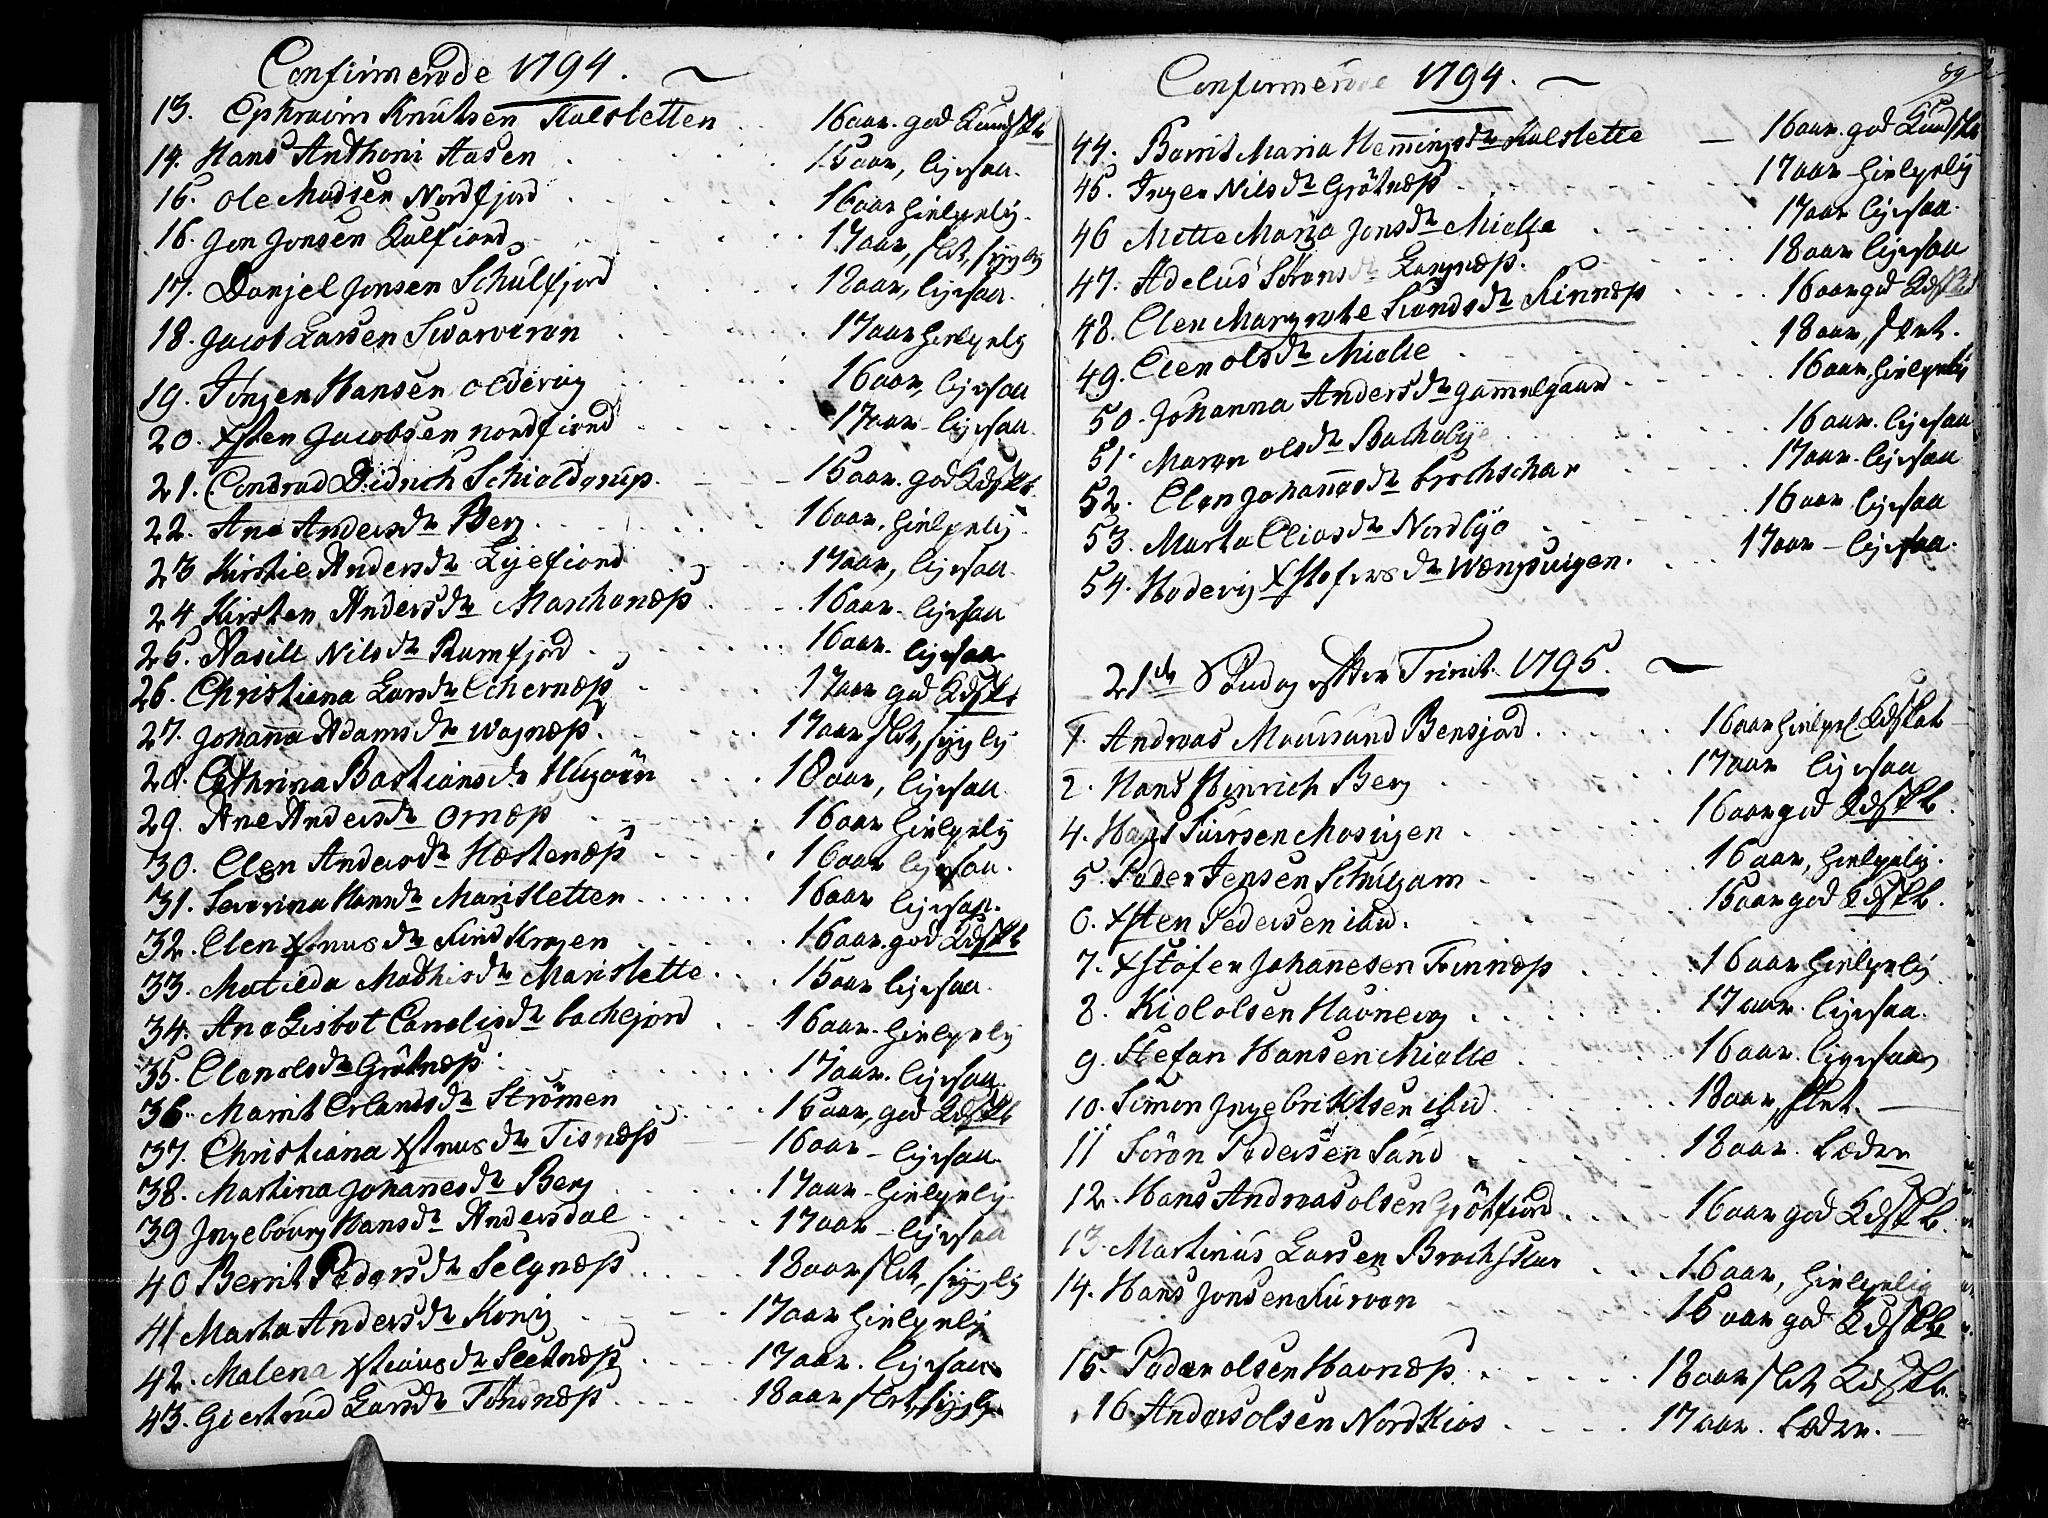 Confirmerede 1794.
13. Ephraim Knutsen Kalsletten . . 16 aar. god Kundskb
14. Hans Anthoni Aasen . . . . 15 aar, ligesaa.
15. Ole Madsen Nordfjord . . . . 16 aar hielpelig.
16. Jon Jonsen Kalfiord . . . . 17 aar, slet,
17. Danjel Jonsen Schulfjord . . . . 18 aar, ligesaa.
18. Jacob Larsen . . . . 17 aar hielpelig
19. Hansen Oldervig . . . . 16 aar, ligesaa
20. Xsten Jacobsen Nordfiord . . . . 17 aar - ligesaa.
21. Condrad Didrich Schieldrup. - - 15 aar. god Kdskb.
22. Ane Andersdr Berg . . . . 16 aar, hielpelig.
23 Kirstie Andersdr Lyefiord . . . . 17 aar, ligesaa.
24 Kirsten Andersdr Maschenæs . . . 16 aar - ligesaa
25. Aasill Nilsdr Ramfjord . . . . 16 aar. ligesaa
26. Christiana Larsdr . . . 17 aar god Kdskb
27. Johanna Adamsdr Wagnæs. . . . 17 aar slet,
28. Cathrina Bastiansdr . . . 18 aar, ligesaa.
29. Ane Andersdr Ornæs . . . . 16 aar hielpelig
30. Elen Andersdr Hæstenæs . . . . 16 aar ligesaa.
31. Severina Hansdr Marisletten . . . . 16 aar ligesaa.
32. Elen Xstnusdr . . . . 16 aar. god Kdskb
33. Matilda Mathisdr Marislette. . . . 15 aar ligesaa.
34. Ane Lisbet Canelisdr Bachejord . . 16 aar - hielpelig
35. Elen Olsdr Grötnæs . . . . 17 aar. ligesaa
36. Marit Erlandsdr Strömen . . . 16 aar, god Kdskb
37. Christiana Xstnusdr Tisnæss - - 16 aar - ligesaa
38. Martina Johanesdr Berg . . . . 17 aar - hielpelig
39 Jngebourg Hansdr Andersdal . . . . 17 aar - ligesaa
40 Berrit Pedersdr Selgnæs . . . . 18 aar slet,
41 Marta Andersdr . . . . 17 aar hielpelig
42. Malena Xstiansdr . . . . 17 aar. ligesaa
43. Giertrud Larsdr Tönsnæs . . . . 18 aar slet,
Confirmerede 1794.
89
44. Berrit Maria Hemingsdr Kalslette - 16 aar god Kundskb
45. Inger Nilsdr Grötnæs . . . . 17 aar hielpelig
46 Mette Maria Jonsdr Mielle . . . . 17 aar ligesaa.
47. Adelus Sörensdr . . . . 18 aar ligesaa
48. Elen Margrete . . . . 16 aar god Kdskb
49. Elen Olsdr Mielle . . . . 18 aar, slet.
50. Johanna Andersdr Gammelgaard . . . . 16 aar, hielpelig
51. Maren Olsdr Bacheby . . . . 16 aar. ligesaa
52. Elen Johannesdr Brochschar . . . . 17 aar. ligesaa
53. Marta Eliasdr Nordbye . . . . 16 aar ligesaa
54. Hedevig Xstofersdr Wængsvigen. . . . 17 aar - ligesaa.
21de Söndag efter Trinit. 1795.
1. Andreas Maursund Bensjord. . . . . 16 aar hielpel. Kdskab
2. Hans Hinrich Berg . . . . 17 aar ligesaa
4. Hans Siursen Mosvigen . . . . 16 aar god Kdskb.
5. Peder Jensen Schulgam . . . . 16 aar, hielpelig.
6. Xsten Pedersen ibid. . . . . 15 aar god Kdskb.
7. Xstofer Johannesen Finnæs . . . . 16 aar hielpelig
8. Kiel Olsen Havnevog . . . . 17 aar. ligesaa.
9. Stefan Hansen Mielle . . . . 16 aar. ligesaa
10. Simon Jngebriktsen ibid . . . . 18 aar, slet.
11 Sören Pedersen Sand . . . . 18 aar. læser
12. Hans Andreas Olsen Grötfiord . . . . 16 aar god Kdskb.
13. Martinus Larsen Brochskar . . . . 16 aar, hielpelig
14. Hans Jonsen . . . . 16 aar god Kdskb
15. Peder Olsen Havnæs . . . . 18 aar slet Kdskb.
16 Anders Olsen Nordkios . . . . 17 aar. læser.